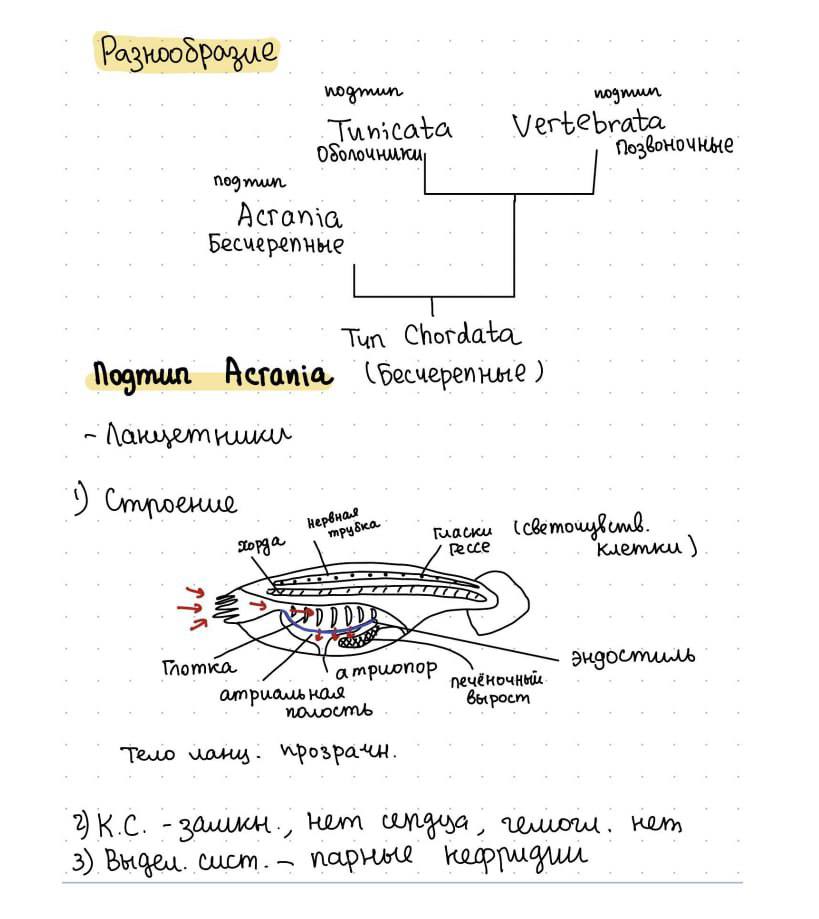 Разнообразие
подтип
Tunicata
Оболочники
подтип
Vertebrata
Позвоночные
подтип
Acrania
Бесчерепные
Тип Chordata
Подтип Acrania (Бесчерепные)
- Ланцетники
1) Строение
хорда
нервная
трубка
глазки
Гессе
(светочувств.
клетки)
Глотка
атриальная
полость
атриопор
печёночный
вырост
эндостиль
Тело ланц. прозрачн.
2) К.С. - замкн., нет сердца, гемогл. нет
3) Выдел. сист. - парные нефридии